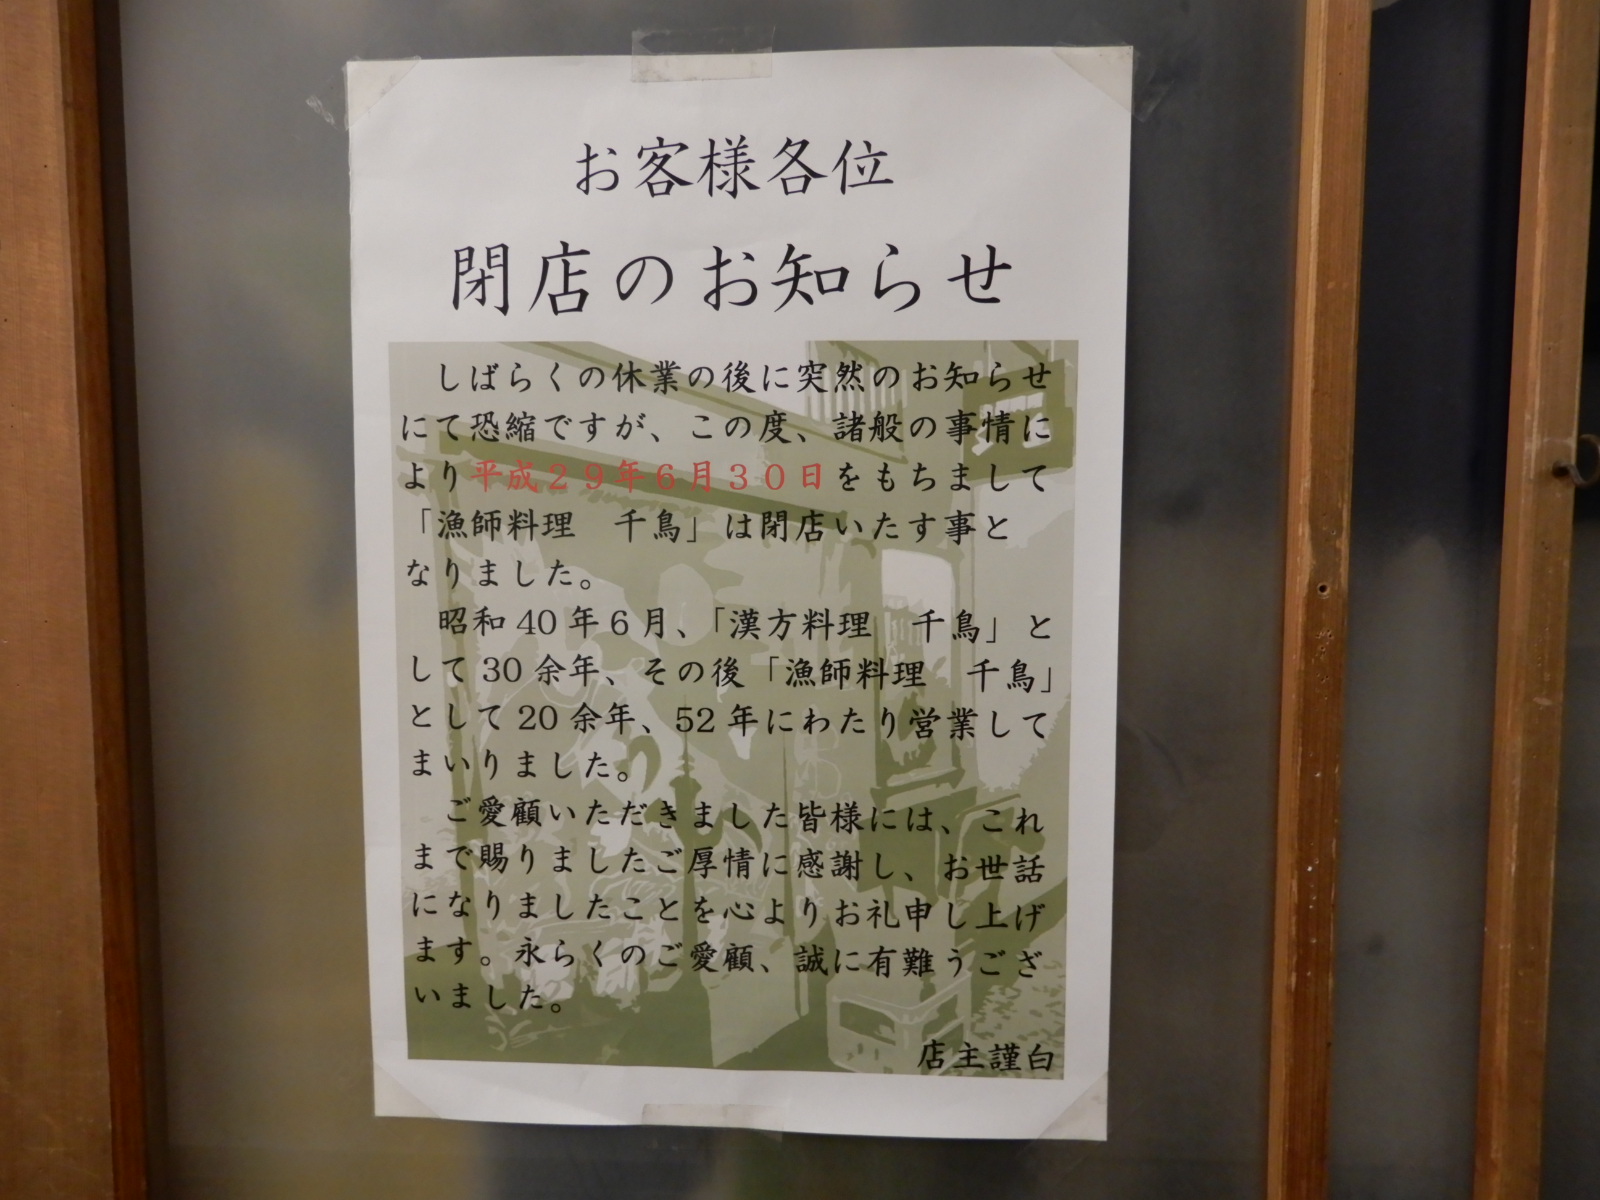 お客様各位
閉店のお知らせ
しばらくの休業の後に突然のお知らせ
にて恐縮ですが、この度、諸般の事情に
より平成２９年６月３０日をもちまして
「漁師料理　千鳥」は閉店いたす事と
なりました。
昭和 40 年６月、「漢方料理　千鳥」と
して 30 余年、その後「漁師料理　千鳥」
として 20 余年、52 年にわたり営業して
まいりました。
ご愛顧いただきました皆様には、これ
まで賜りましたご厚情に感謝し、お世話
になりましたことを心よりお礼申し上げ
ます。永らくのご愛顧、誠に有難うござ
いました。
店主謹白